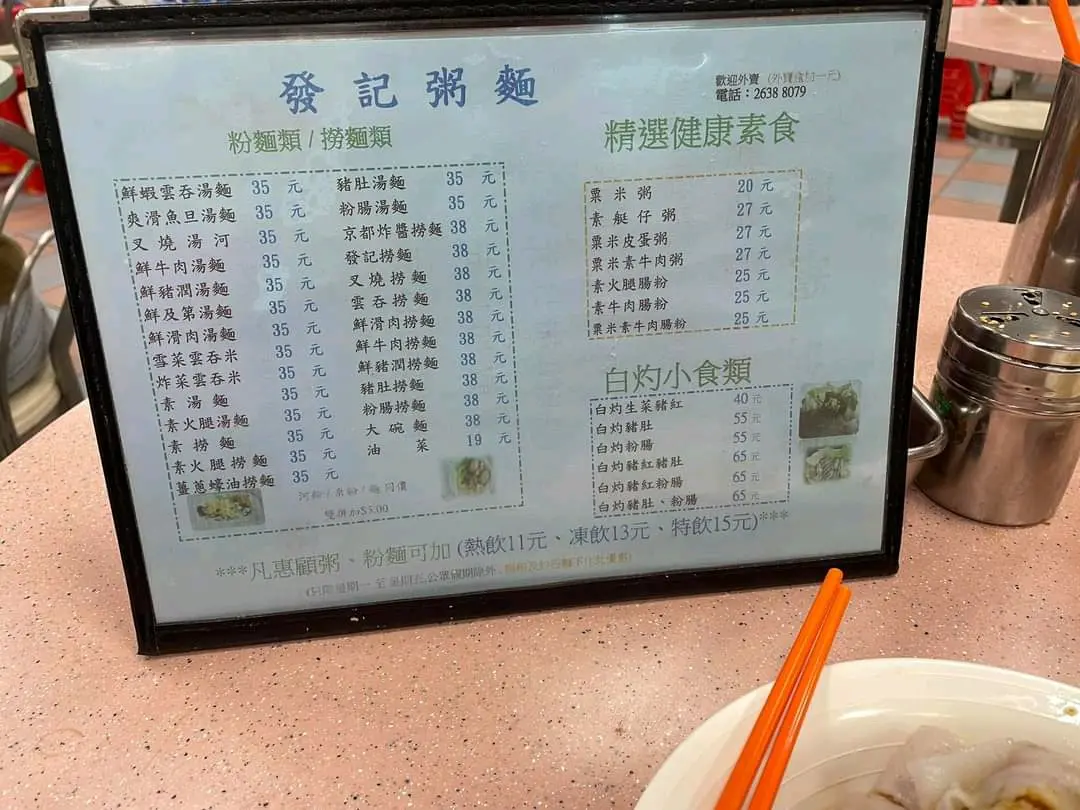 發記粥麵
歡迎外賣 (外賣盒加一元)
電話：2638 8079
粉麵類 / 撈麵類
鮮蝦雲吞湯麵 35 元
爽滑魚旦湯麵 35 元
叉燒湯河 35 元
鮮牛肉湯麵 35 元
鮮豬潤湯麵 35 元
鮮及第湯麵 35 元
鮮滑肉湯麵 35 元
雪菜雲吞米 35 元
炸菜雲吞米 35 元
素湯麵 35 元
素火腿湯麵 35 元
素撈麵 35 元
素火腿撈麵 35 元
薑蔥蠔油撈麵 35 元
豬肚湯麵 35 元
粉腸湯麵 35 元
京都炸醬撈麵 38 元
發記撈麵 38 元
叉燒撈麵 38 元
雲吞撈麵 38 元
鮮滑肉撈麵 38 元
鮮牛肉撈麵 38 元
鮮豬潤撈麵 38 元
豬肚撈麵 38 元
粉腸撈麵 38 元
大碗麵 38 元
油菜 19 元
河粉 / 米粉 / 麵 同價
雙併加$5.00
精選健康素食
粟米粥 20 元
素艇仔粥 27 元
粟米皮蛋粥 27 元
粟米素牛肉粥 27 元
素火腿腸粉 25 元
素牛肉腸粉 25 元
粟米素牛肉腸粉 25 元
白灼小食類
白灼生菜豬紅 40 元
白灼豬肚 55 元
白灼粉腸 55 元
白灼豬紅豬肚 65 元
白灼豬紅粉腸 65 元
白灼豬肚、粉腸 65 元
***凡惠顧粥、粉麵可加 (熱飲11元、凍飲13元、特飲15元)***
(只限星期一至星期五公眾假期除外